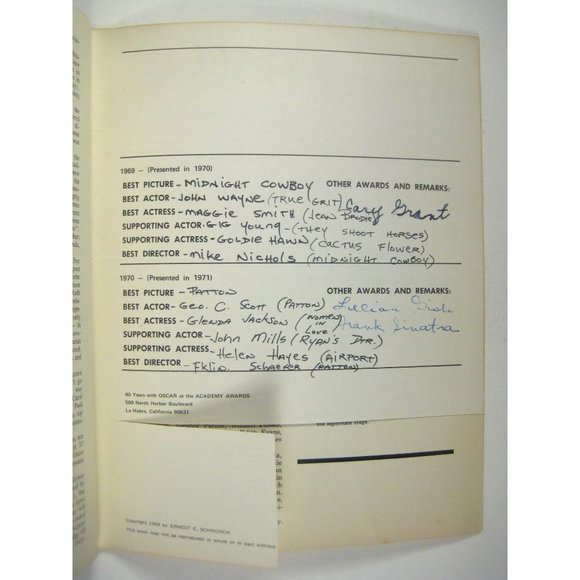 1969 – (Presented in 1970)
BEST PICTURE – MIDNIGHT COWBOY OTHER AWARDS AND REMARKS:
BEST ACTOR – JOHN WAYNE (TRUE GRIT) Cary Grant
BEST ACTRESS – MAGGIE SMITH (JEAN BRODIE)
SUPPORTING ACTOR – GIG YOUNG – (THEY SHOOT HORSES)
SUPPORTING ACTRESS – GOLDIE HAWN (CACTUS FLOWER)
BEST DIRECTOR – MIKE NICHOLS (MIDNIGHT COWBOY)
1970 – (Presented in 1971)
BEST PICTURE – PATTON OTHER AWARDS AND REMARKS:
BEST ACTOR – GEO. C. SCOTT (PATTON) Lillian Gish
BEST ACTRESS – GLENDA JACKSON (WOMEN IN LOVE) Frank Sinatra
SUPPORTING ACTOR – JOHN MILLS (RYAN'S DTR.)
SUPPORTING ACTRESS – HELEN HAYES (AIRPORT)
BEST DIRECTOR – FKLIN. SCHAEFER (PATTON)
40 Years with OSCAR at the ACADEMY AWARDS
509 North Harbor Boulevard
La Habra, California 90631
the legitimate stage.
Copyright 1969 by ERNEST E. SCHWORCK
This book may not be reproduced in whole or in part without